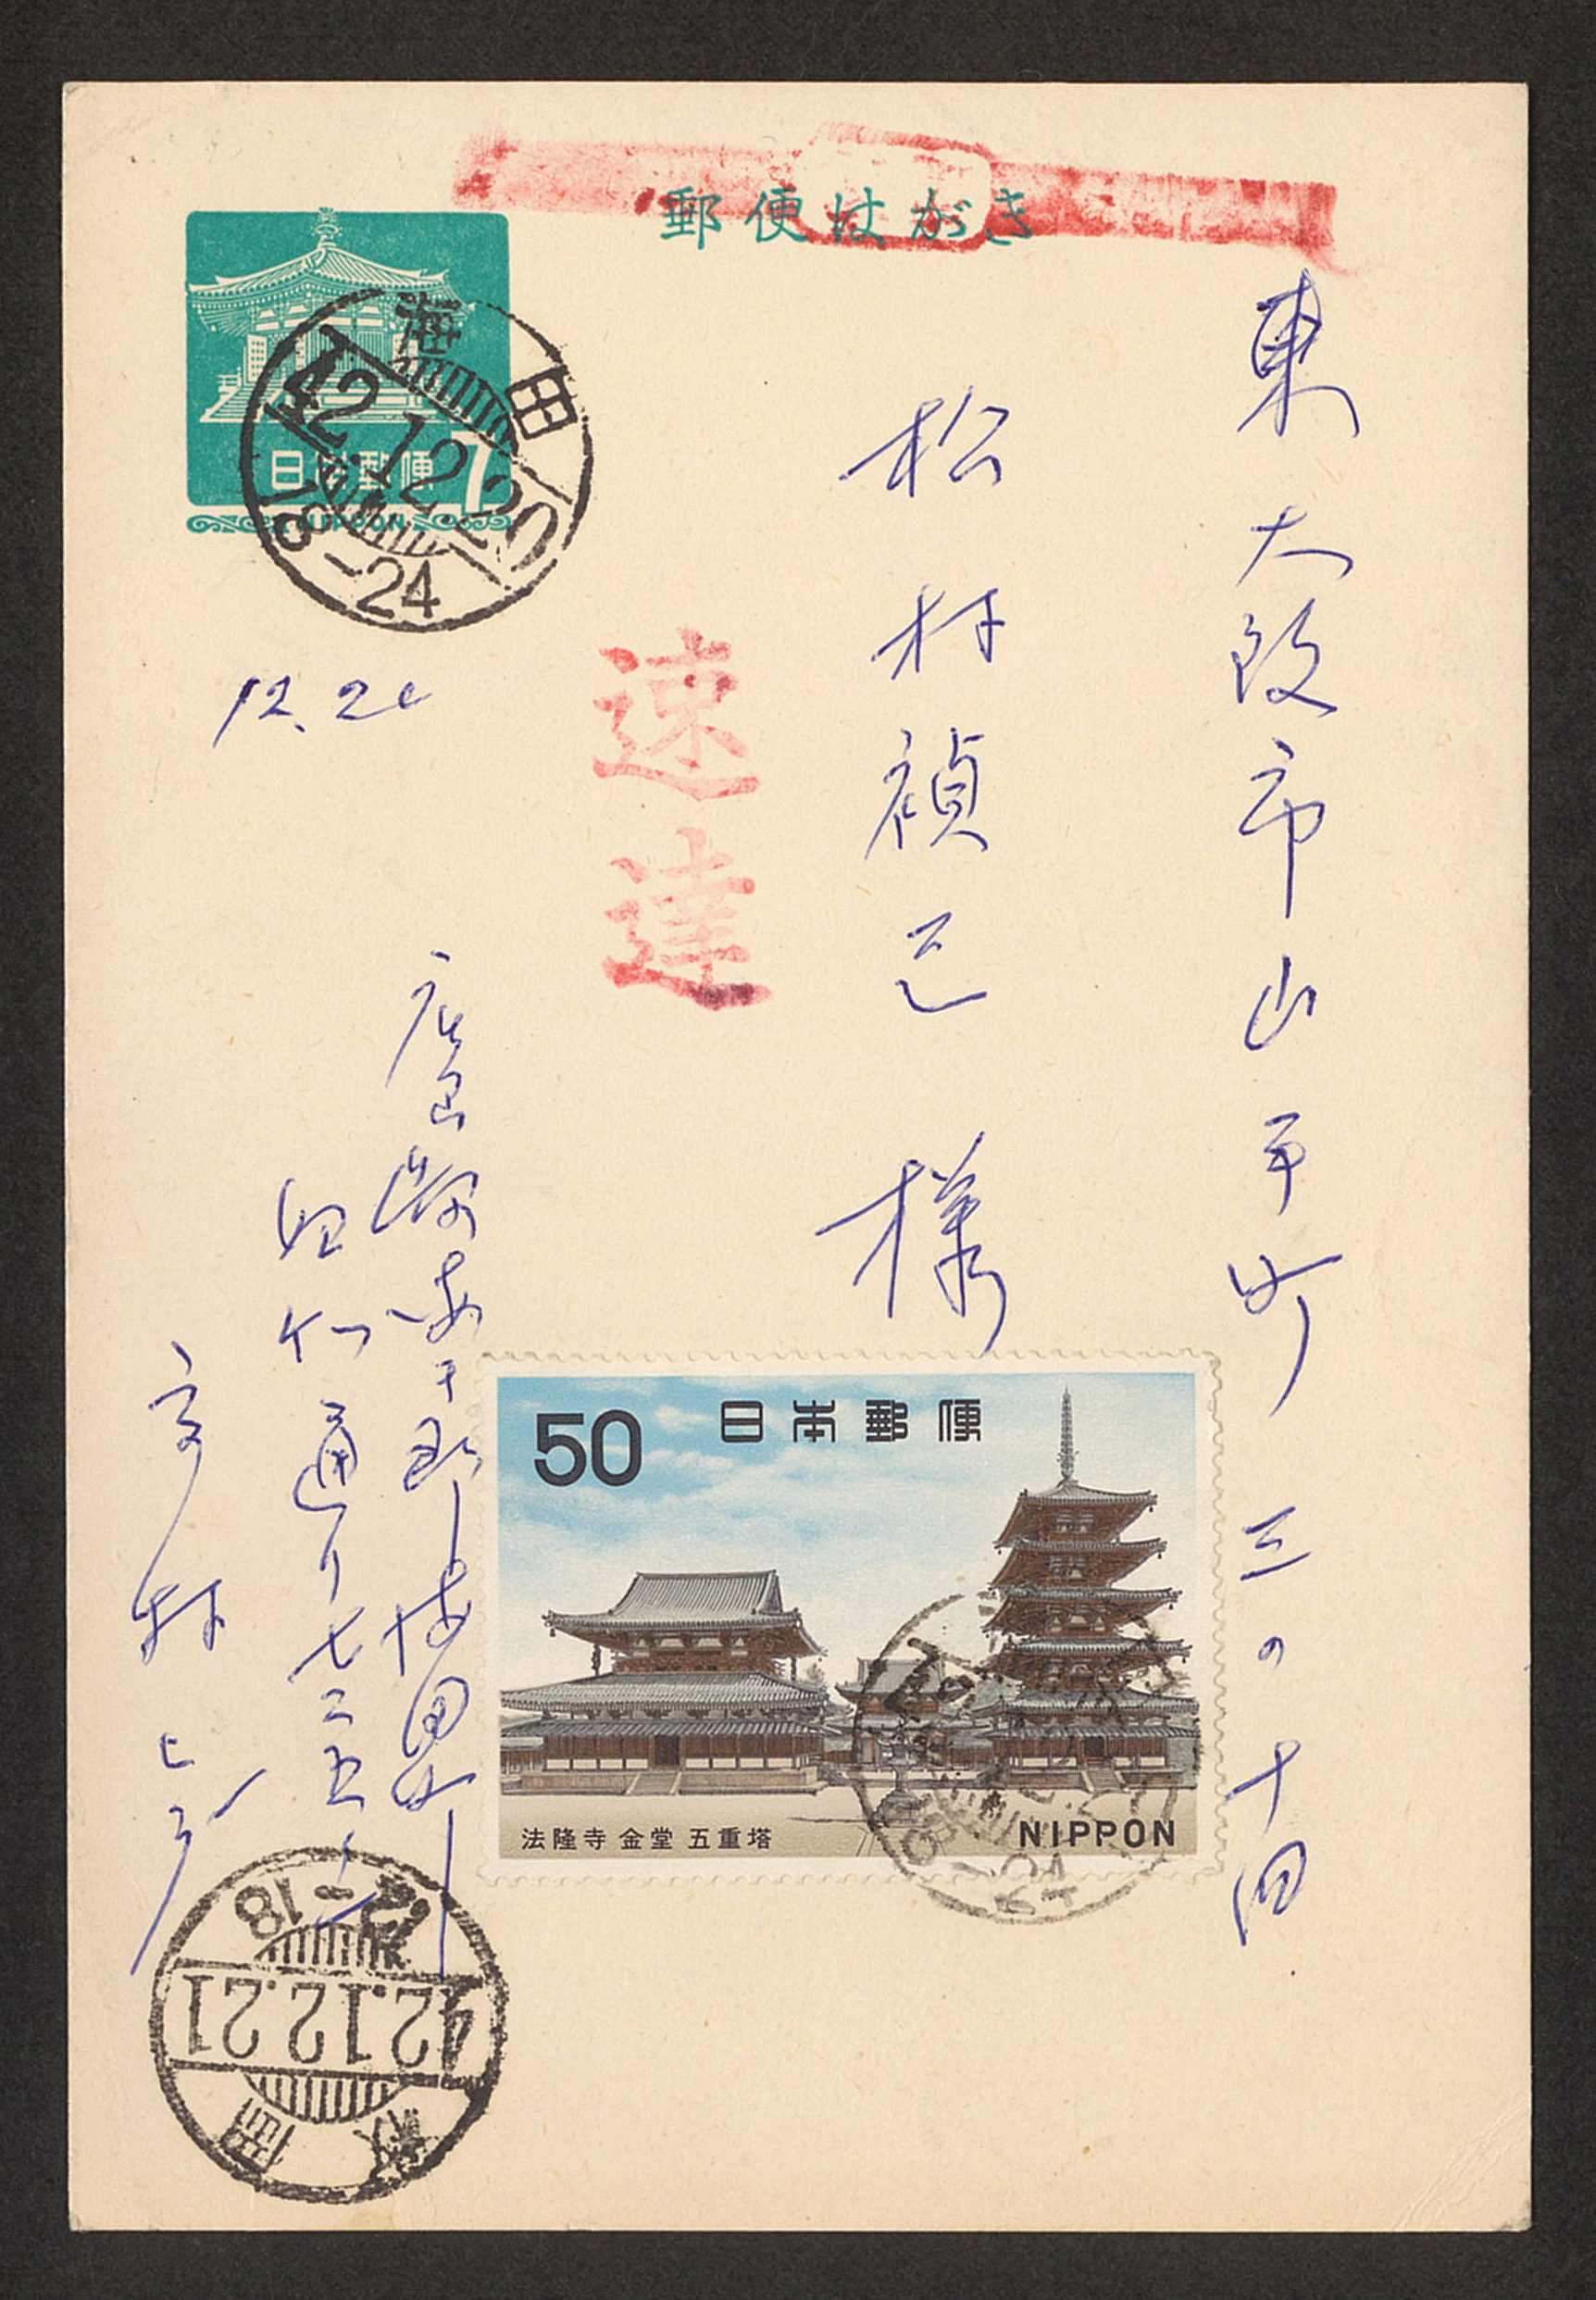 郵便はがき
日本郵便 7
NIPPON
海田
42.12.20
18-24
東大阪市山手町三の十四
松村禎三様
速達
12.20
広島県安芸郡海田町
昭和通り七三五
高村
50 日本郵便
法隆寺 金堂 五重塔
NIPPON
42.12.21
-18